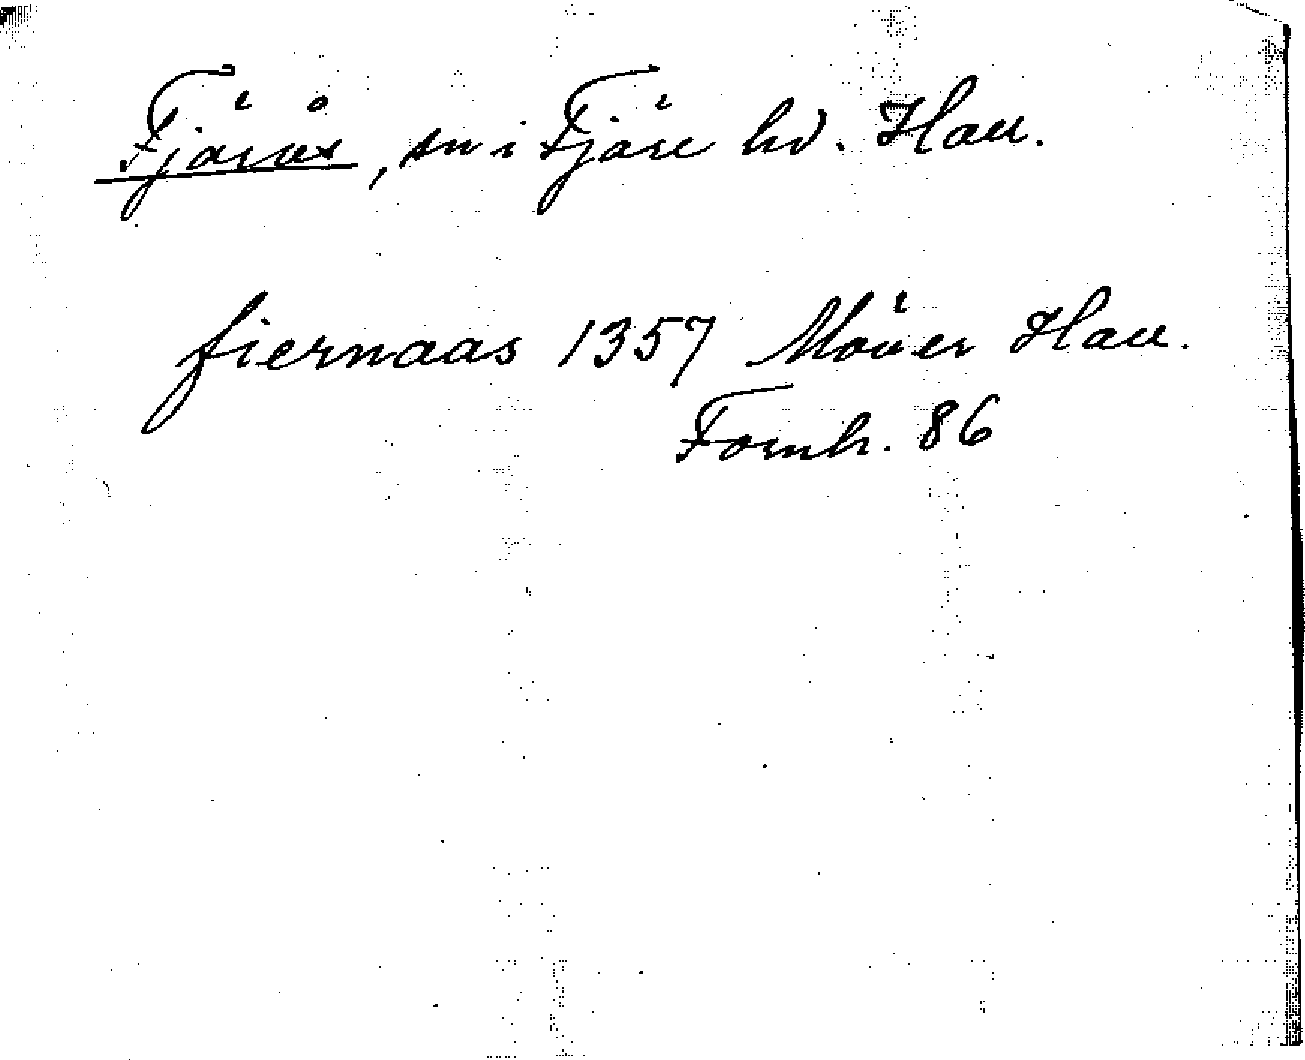 Fjärås, sn i Fjäre hd. Hall.
fiernaas 1357 Möller Hall.
Fornh. 86